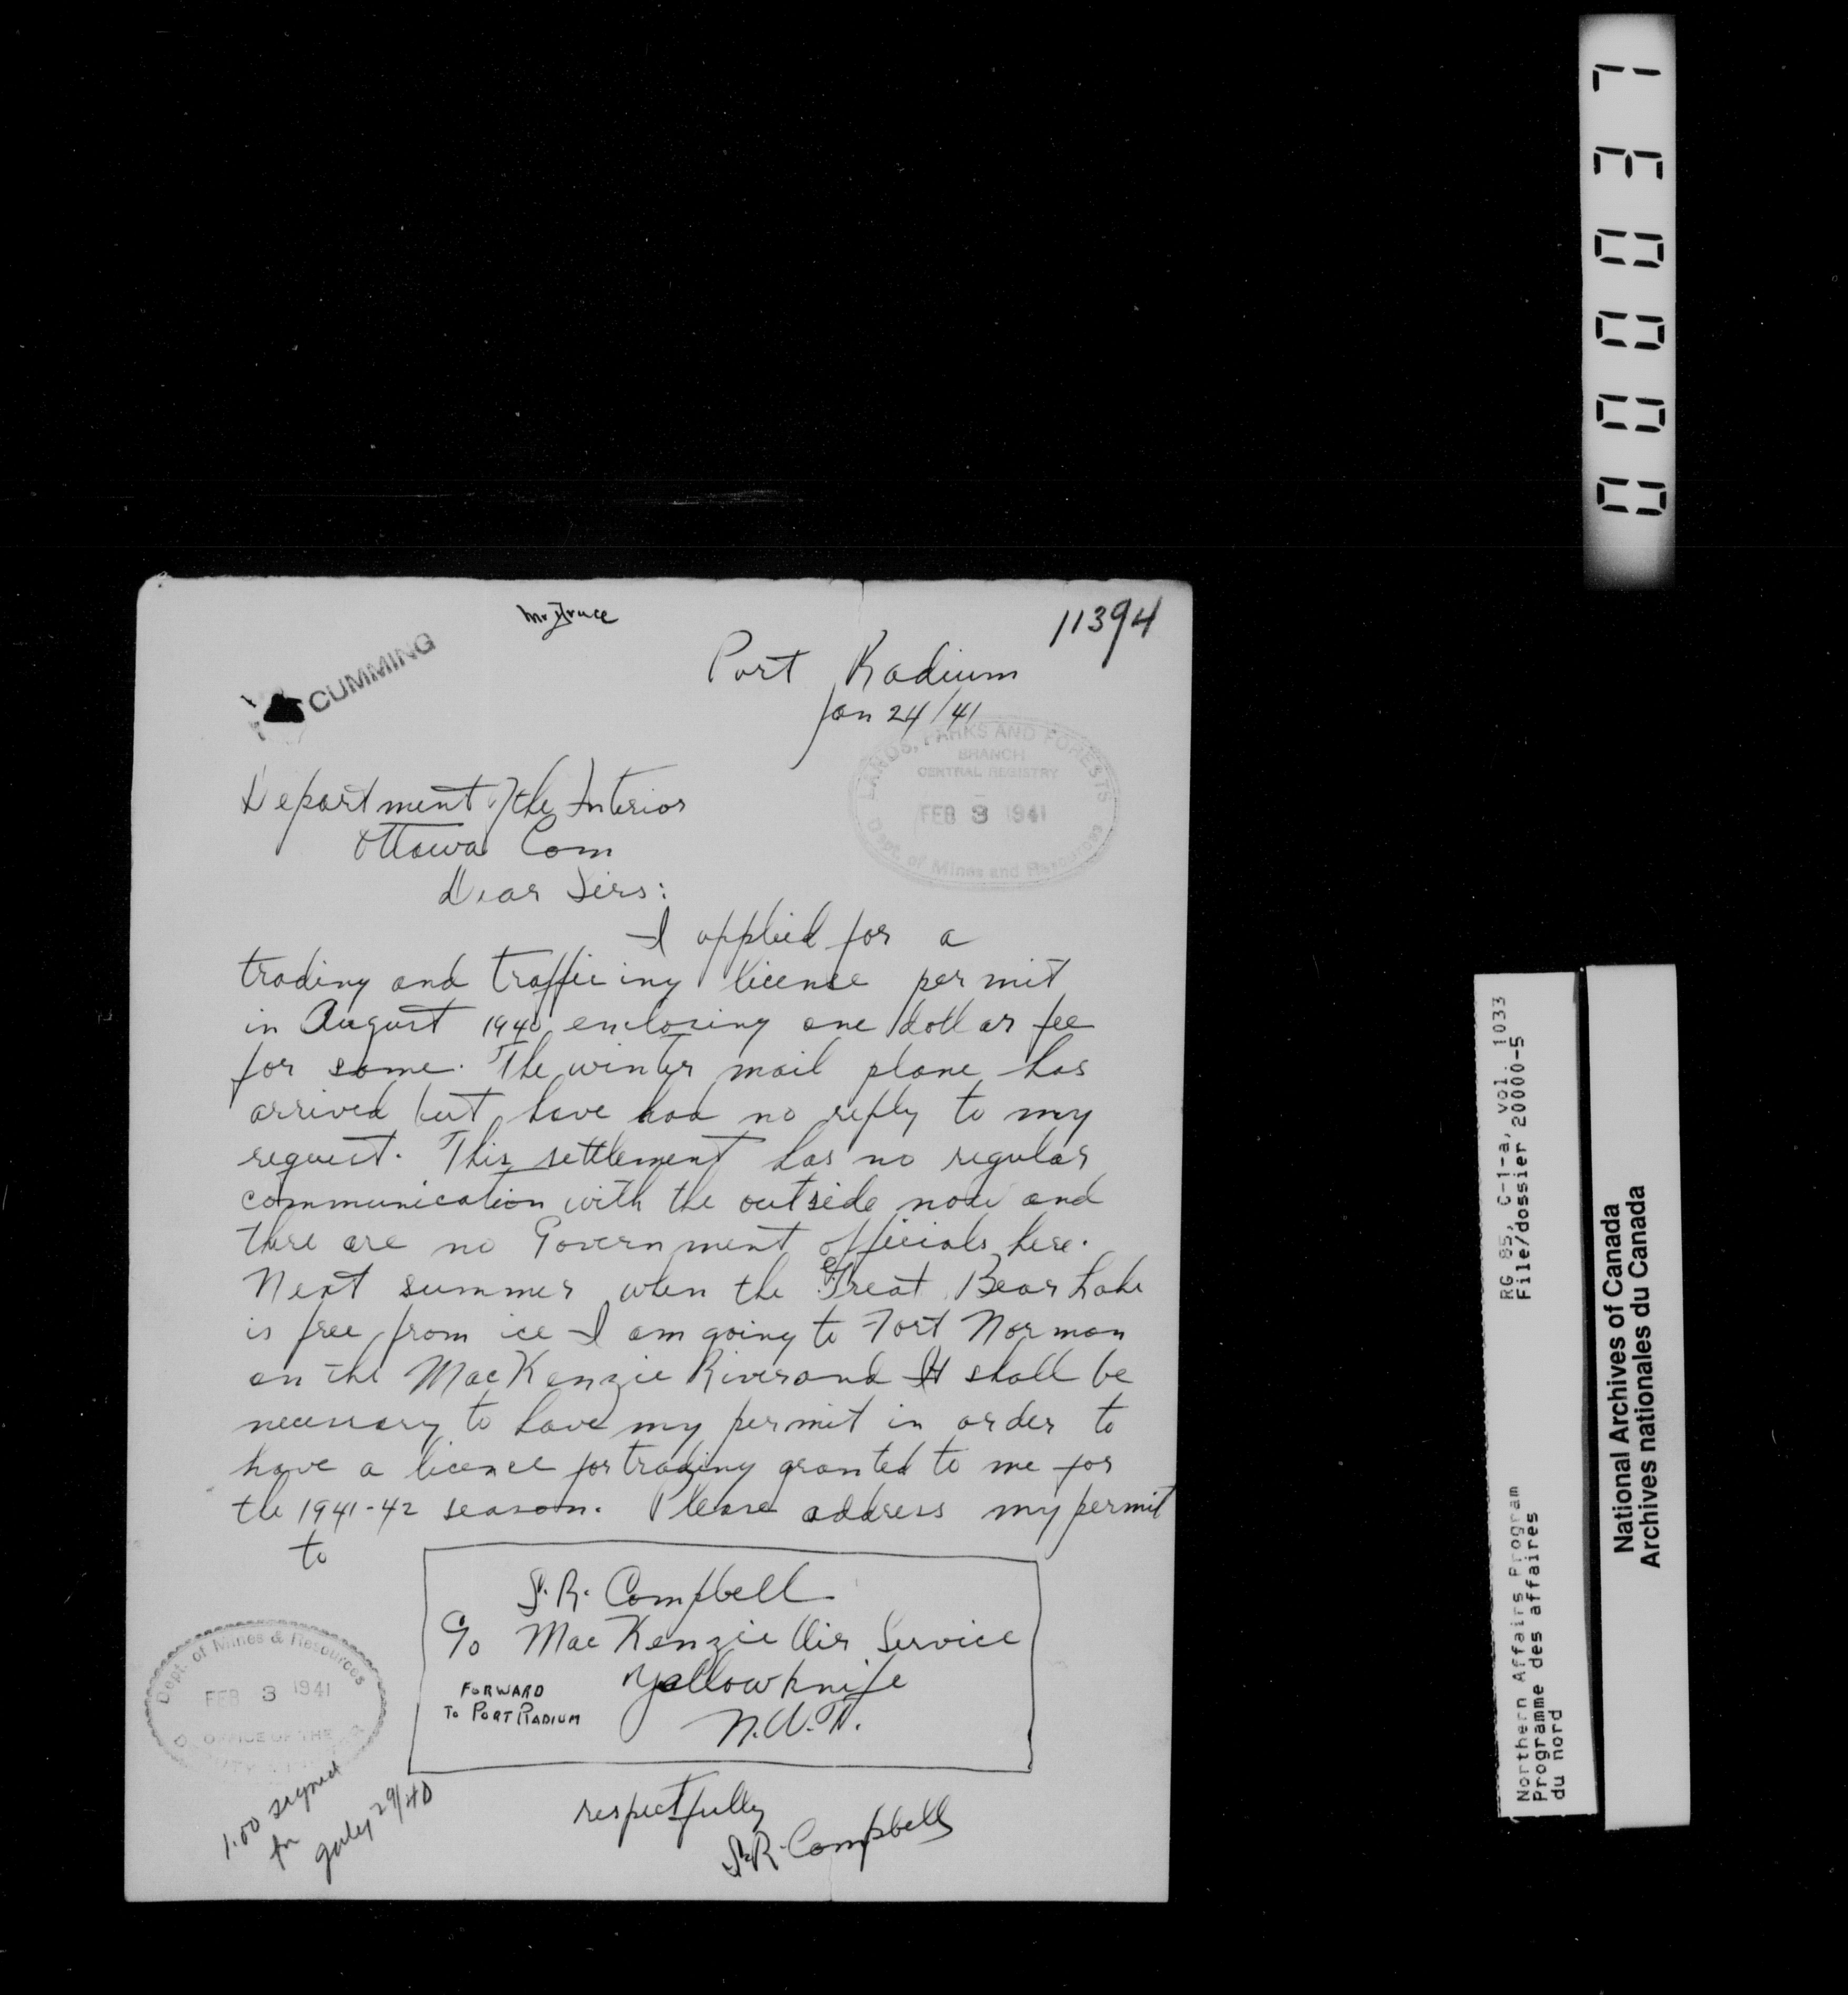 11394
CUMMING
Port Radium
Jan 24/41
LANDS, PARKS AND FORESTS
BRANCH
CENTRAL REGISTRY
FEB 3 1941
Dept. of Mines and Resources
Department of the Interior
Ottawa Can
Dear Sirs:
I applied for a
trading and trafficing license permit
in August 1940, enclosing one dollar fee
for same. The winter mail plane has
arrived but have had no reply to my
request. This settlement has no regular
communication with the outside now and
there are no Government officials here.
Next summer when the Great Bear Lake
is free from ice I am going to Fort Norman
on the MacKenzie River and It shall be
necessary to have my permit in order to
have a licence for trading granted to me for
the 1941-42 season. Please address my permit
to
S.R. Campbell
c/o MacKenzie Air Service
Yellowknife
FORWARD
TO PORT RADIUM
N.W.T.
Dept. of Mines & Resources
FEB 3 1941
OFFICE OF THE
respectfully
S.R. Campbell
1.00 signed
for
July 29/40
000037
RG 85, C-1-a, vol. 1033
File/dossier 20000-5
Northern Affairs Program
Programme des affaires
du nord
National Archives of Canada
Archives nationales du Canada